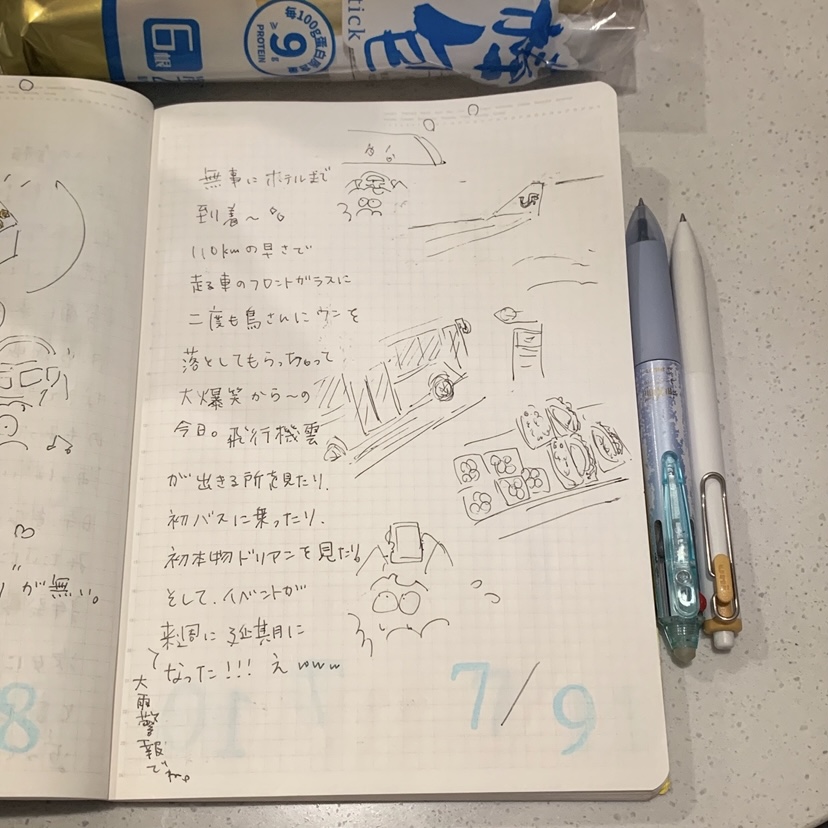 每100g蛋白质含量
≥9g
PROTEIN
tick
6
無事にホテルまで
到着〜
110kmの早さで
走る車のフロントガラスに
二度も鳥さんにウンを
落としてもらっちゃって
大爆笑から〜の
今日。飛行機雲
が出きる所を見たり、
初バスに乗ったり、
初本物ドリアンを見たり。
そして、イベントが
来週に延期に
なった!!! え www
大雨警報でね。
7/9
が無い。
8